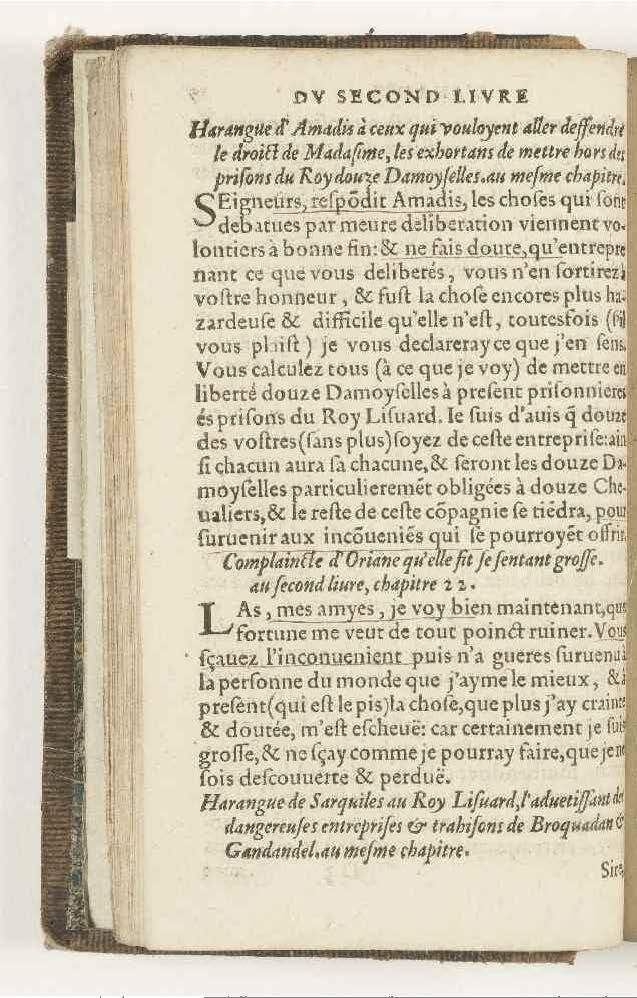 DV SECOND LIVRE
Harangue d'Amadis à ceux qui vouloyent aller deffendre
le droict de Madaſime, les exhortans de mettre hors des
priſons du Roy douze Damoyſelles. au meſme chapitre.
SEigneurs, reſpõdit Amadis, les choſes qui ſont
debatues par meure deliberation viennent vo-
lontiers à bonne fin: & ne fais doute, qu'entrepre
nant ce que vous deliberés, vous n'en ſortirez à
voſtre honneur, & fuſt la choſe encores plus ha-
zardeuſe & difficile qu'elle n'eſt, toutesfois (s'il
vous plaiſt) je vous declareray ce que j'en ſens.
Vous calculez tous (à ce que je voy) de mettre en
liberté douze Damoyſelles à preſent priſonnieres
és priſons du Roy Liſuard. Ie ſuis d'auis q̃ douze
des voſtres (ſans plus) ſoyez de ceſte entrepriſe: ain
ſi chacun aura ſa chacune, & ſeront les douze Da-
moyſelles particulieremẽt obligées à douze Che-
ualiers, & le reſte de ceſte cõpagnie ſe tiẽdra, pour
ſuruenir aux incõueniẽs qui ſe pourroyẽt offrir.
Complaincte d'Oriane qu'elle fit ſe ſentant groſſe.
au ſecond liure, chapitre 22.
LAs, mes amyes, je voy bien maintenant, que
fortune me veut de tout poinct ruiner. Vous
ſçauez l'inconuenient puis n'a gueres ſuruenu à
la perſonne du monde que j'ayme le mieux, & à
preſent (qui eſt le pis) la choſe, que plus j'ay crainte
& doutée, m'eſt eſcheuë: car certainement je ſuis
groſſe, & ne ſçay comme je pourray faire, que je ne
ſois deſcouuerte & perduë.
Harangue de Sarquiles au Roy Liſuard, l'aduetiſſant des
dangereuſes entrepriſes & trahiſons de Broquadan &
Gandandel. au meſme chapitre.
Sire,